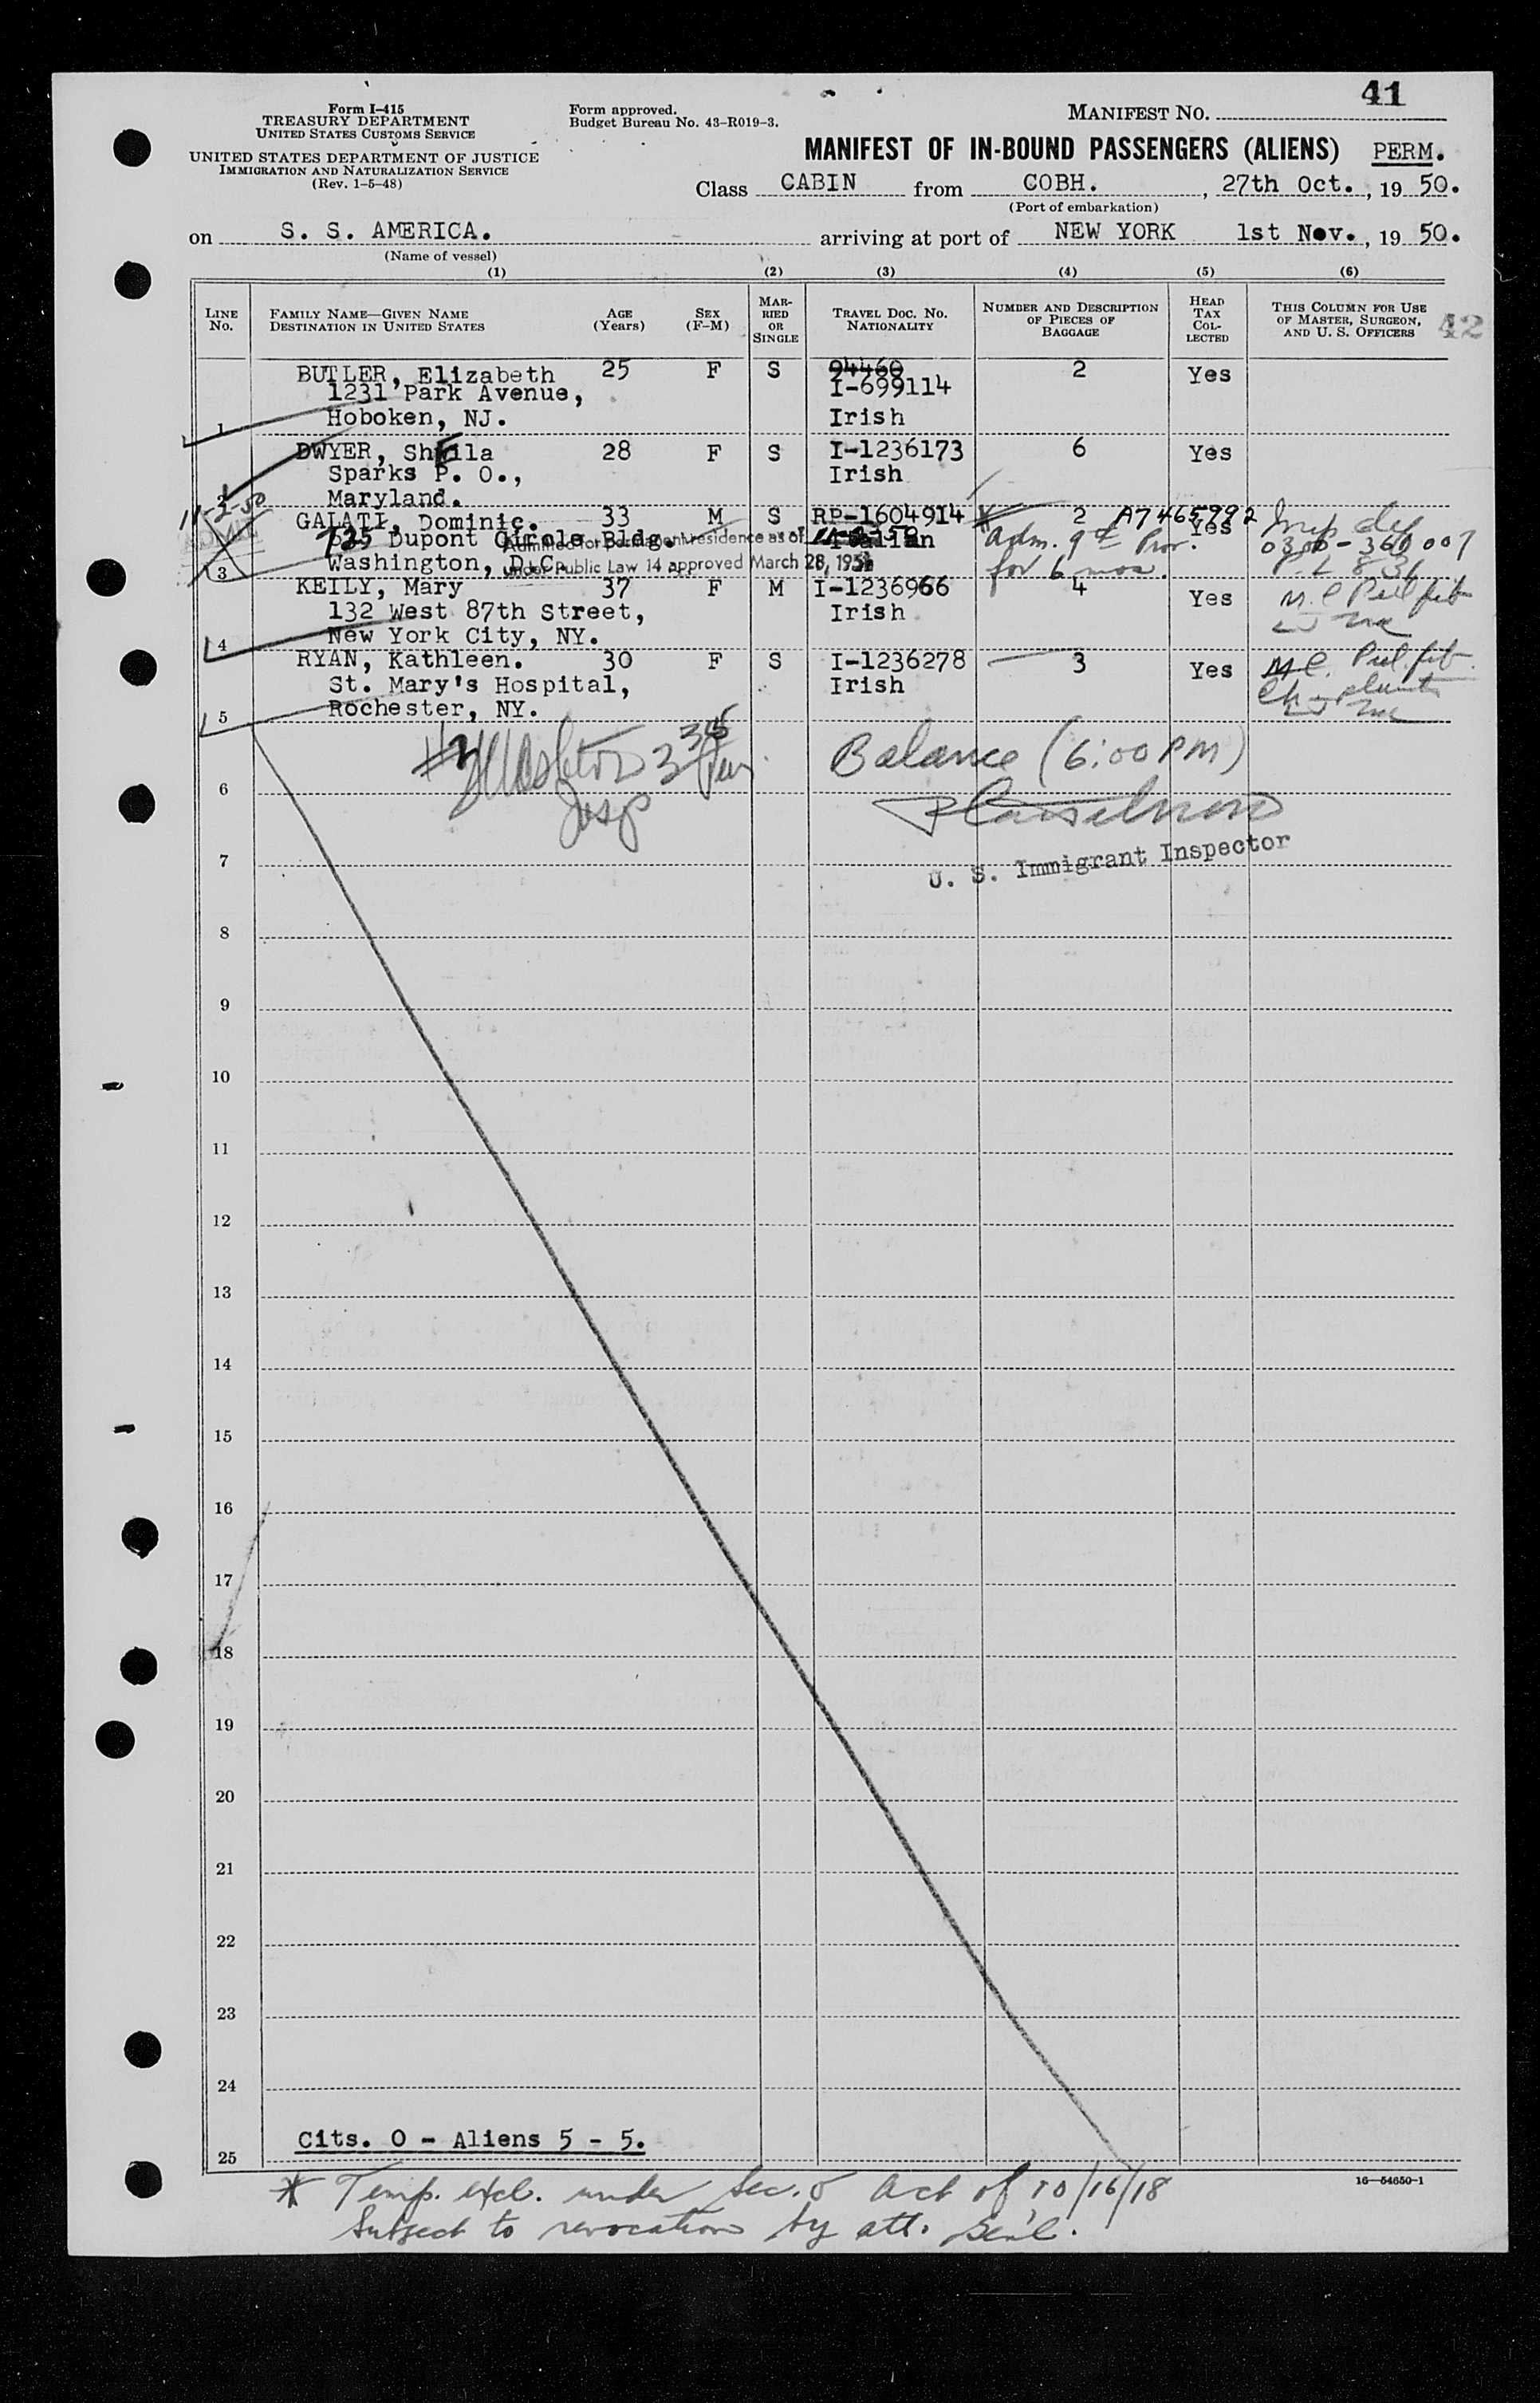 41
Form I-415
TREASURY DEPARTMENT
UNITED STATES CUSTOMS SERVICE
UNITED STATES DEPARTMENT OF JUSTICE
IMMIGRATION AND NATURALIZATION SERVICE
(Rev. 1-5-48)
Form approved.
Budget Bureau No. 43-R019-3.
MANIFEST NO.
MANIFEST OF IN-BOUND PASSENGERS (ALIENS) PERM.
Class CABIN from COBH. , 27th Oct. , 19 50.
(Port of embarkation)
on S. S. AMERICA. arriving at port of NEW YORK 1st Nov. , 19 50.
(Name of vessel)
(1) (2) (3) (4) (5) (6)
LINE No. FAMILY NAME—GIVEN NAME DESTINATION IN UNITED STATES AGE (Years) SEX (F-M) MARRIED OR SINGLE TRAVEL DOC. NO. NATIONALITY NUMBER AND DESCRIPTION OF PIECES OF BAGGAGE HEAD TAX COLLECTED THIS COLUMN FOR USE OF MASTER, SURGEON, AND U. S. OFFICERS 42
BUTLER, Elizabeth 25 F S 94460 2 Yes
1231 Park Avenue, I-699114
1 Hoboken, NJ. Irish
DWYER, Sheila 28 F S I-1236173 6 Yes
Sparks P. O., Irish
2 Maryland.
11-2-50
GALATI, Dominic. 33 M S RP-1604914 2 A7465992 Yes
735 Dupont Circle Bldg. Italian Adm. 9th Prov. 0300-360007
Admitted for permanent residence as of 11-2-50
3 Washington, D.C. for 6 mos. P.L 831
under Public Law 14 approved March 28, 1951
KEILY, Mary 37 F M I-1236966 4 Yes
132 West 87th Street, Irish
4 New York City, NY.
RYAN, Kathleen. 30 F S I-1236278 3 Yes
St. Mary's Hospital, Irish
5 Rochester, NY.
Insp
Balance (6:00 PM)
6
7 U. S. Immigrant Inspector
8
9
10
11
12
13
14
15
16
17
18
19
20
21
22
23
24
Cits. 0 - Aliens 5 - 5.
25
16—54650-1
* Temp. excl. under Sec. 5 Act of 10/16/18
Subject to revocation by att. Gen'l.